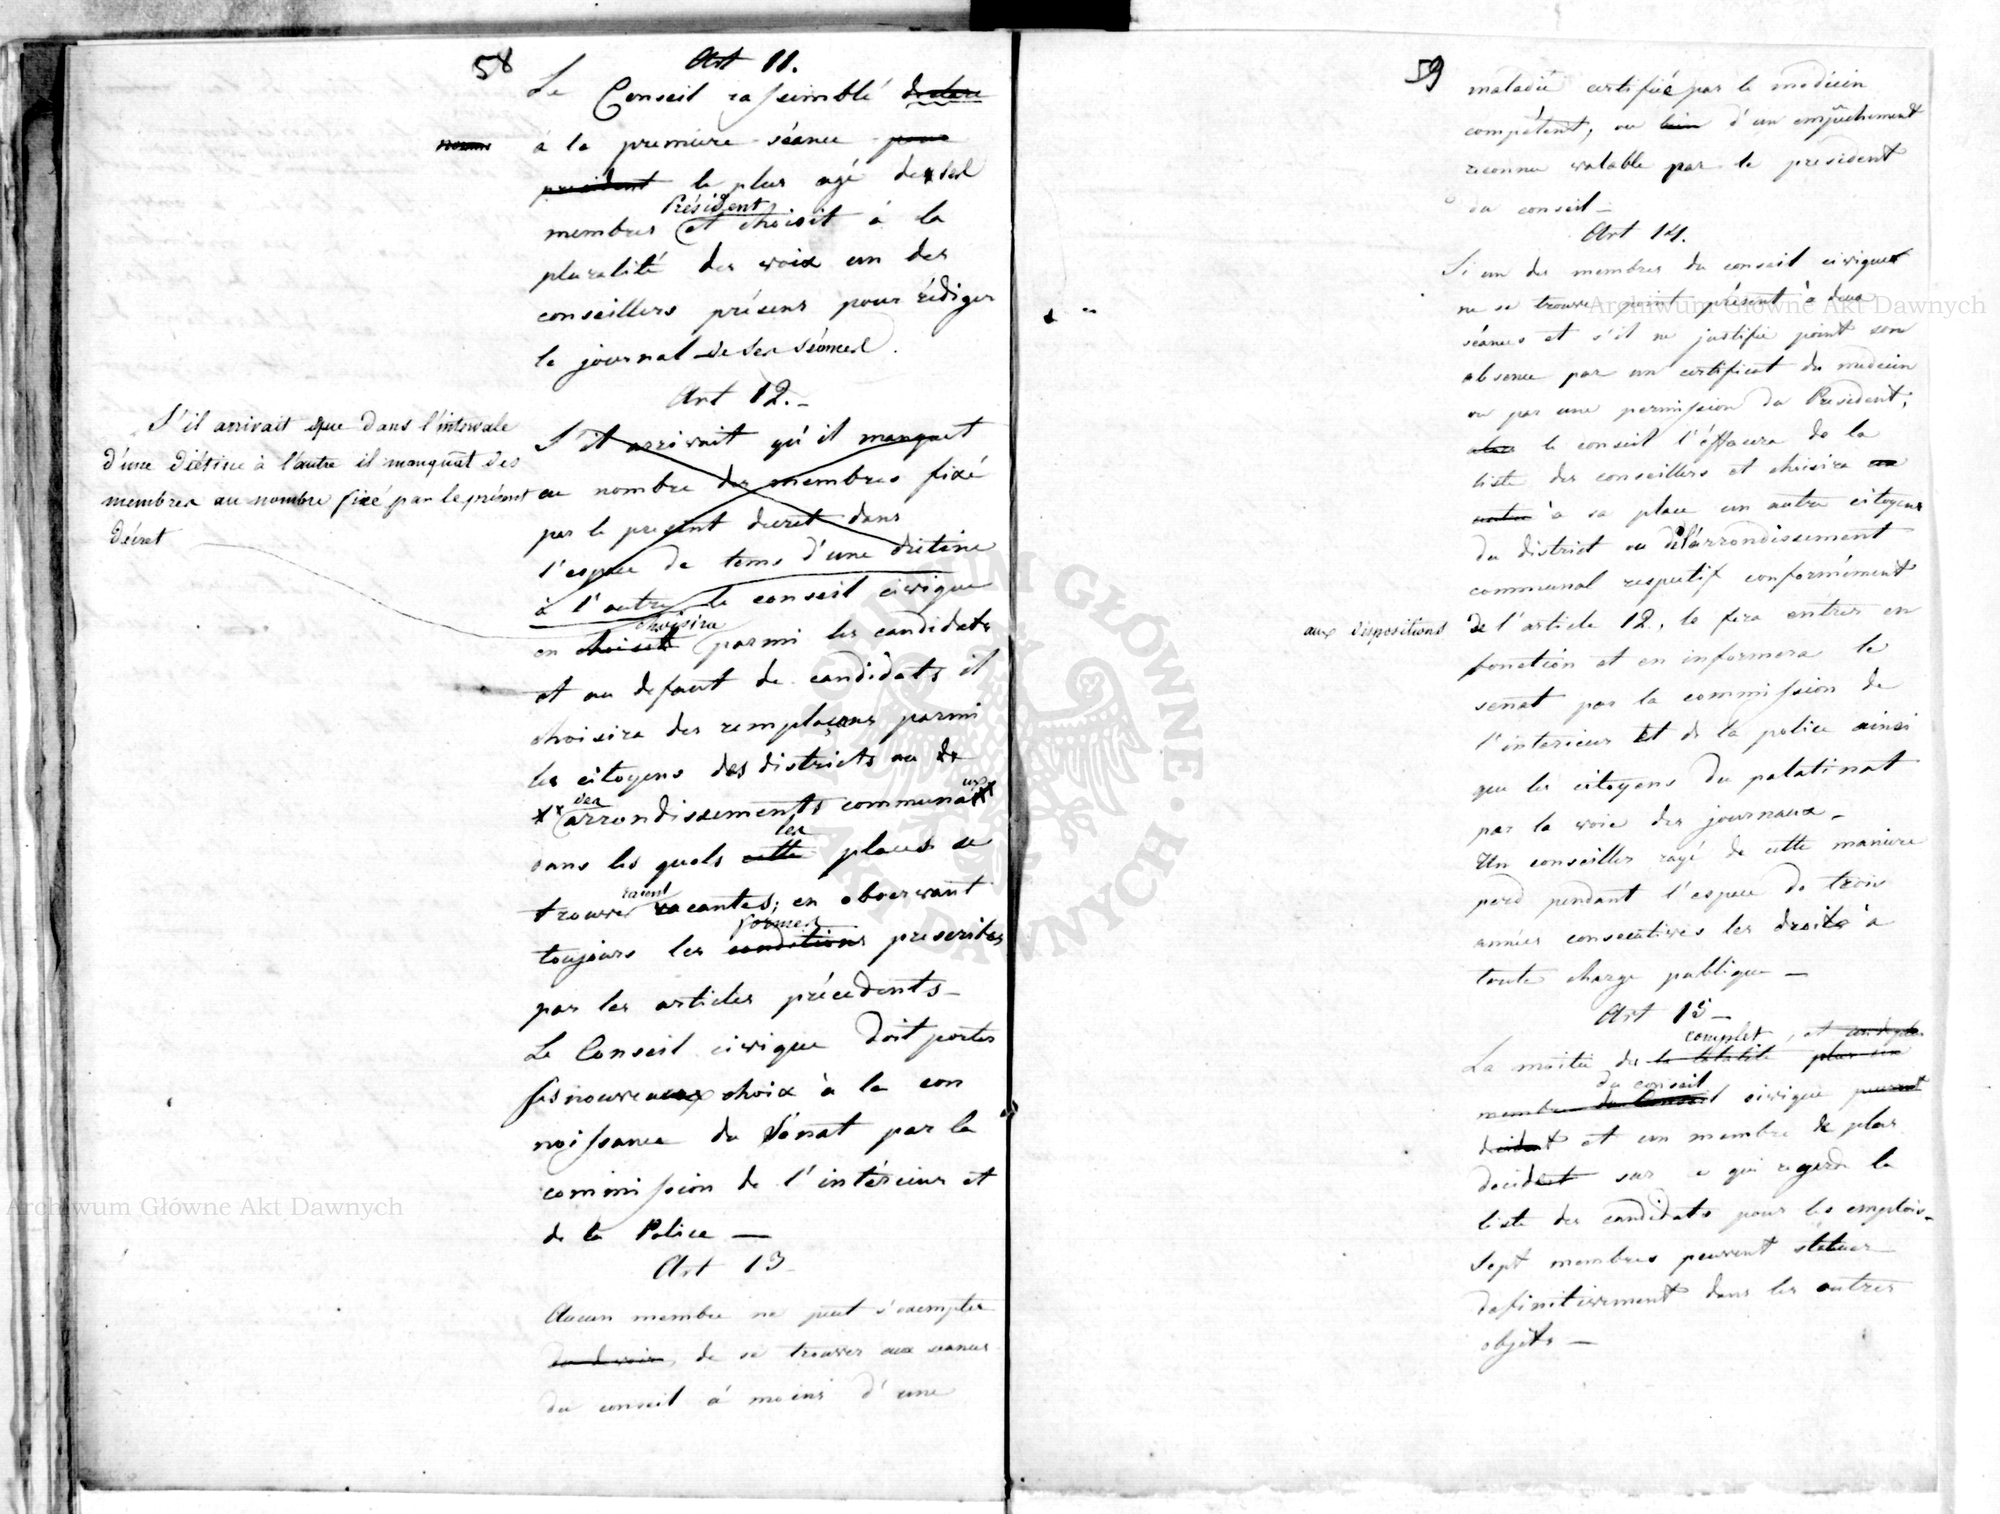 58
Art 11.
Le Conseil rassemblé declare
nomme à la premiere séance pour
president le plus agé de ses
Président
membres et choisit à la
pluralité des voix un des
conseillers présens pour rédiger
le journal de ses séances.
Art 12.
S'il arrivait que dans l'intervale
d'une diétine à l'autre il manquat des
membres au nombre fixé par le présent
décret
S'il arrivait qu'il manquat
au nombre des membres fixé
par le present decret dans
l'espace de tems d'une diétine
à l'autre le conseil civique
choisira
en choisit parmi les candidats
et au defaut de candidats il
choisira des remplaçans parmi
les citoyens des districts ou de
des
arrondissements communaux
les
dans les quels cette places se
raient
trouve vacantes; en observant
formes
toujours les conditions prescrites
par les articles précédents_
Le Conseil civique doit porter
ses nouveaux choix à la con
noissance du Sénat par la
commission de l'intérieur et
de la Police —
Art 13
Aucun membre ne peut s'exempter
du devoir, de se trouver aux seances
du conseil à moins d'une
59
maladie certifiée par le medecin
compétent, ou bien d'un empêchement
reconnu valable par le president
du conseil _
Art 14.
Si un des membres du conseil civique
ne se trouve point présent à deux
séances et s'il ne justifie point son
absence par un certificat du medecin
ou par une permission du President;
alors le conseil l'éffacera de la
liste des conseillers et choisira un
autre à sa place un autre citoyens
du district ou de l'arrondissement
communal respectif conformément
aux dispositions de l'article 12, le fera entrer en
fonction et en informera le
senat par la commission de
l'interieur et de la police ainsi
que les citoyens du palatinat
par la voie des journaux_
Un conseiller rayé de cette maniere
perd pendant l'espace de trois
années consecutives les droits à
toute charge publique —
Art 15 _
complet, et
La moitié de la totalité plus un
du conseil
membre du Conseil civique peuvent
decident et un membre de plus
decident sur ce qui regarde la
liste des candidats pour les emplois_
Sept membres peuvent statuer
definitivement dans les autres
objets —
Archiwum Główne Akt Dawnych
Archiwum Główne Akt Dawnych
ARCHIWUM GŁÓWNE · AKT DAWNYCH ·